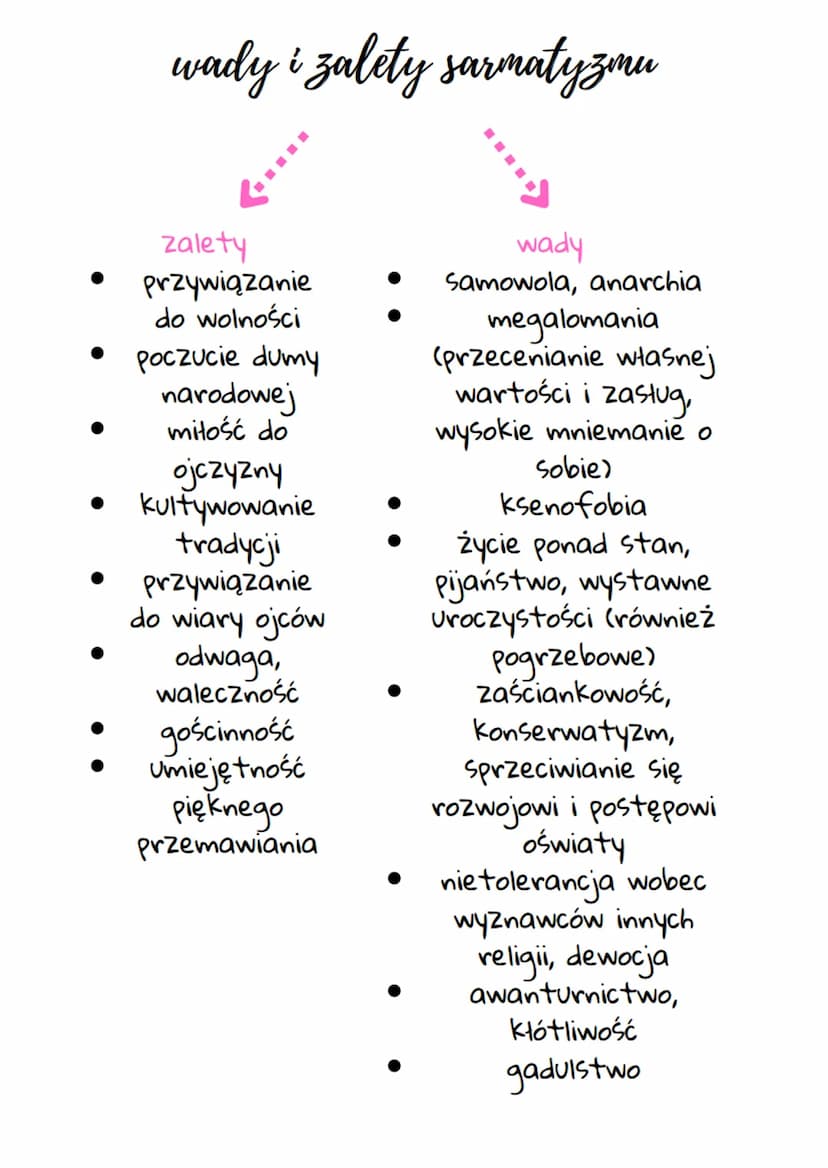 wady i zalety sarmatyzmu
zalety
• przywiązanie
do wolności
• poczucie dumy
narodowej
• miłość do
ojczyzny
• kultywowanie
tradycji
• przywiązanie
do wiary ojców
• odwaga,
waleczność
• gościnność
• umiejętność
pięknego
przemawiania
wady
• samowola, anarchia
• megalomania
(przecenianie własnej
wartości i zasług,
wysokie mniemanie o
sobie)
• ksenofobia
• życie ponad stan,
pijaństwo, wystawne
uroczystości (również
pogrzebowe)
• zaściankowość,
konserwatyzm,
sprzeciwianie się
rozwojowi i postępowi
oświaty
• nietolerancja wobec
wyznawców innych
religii, dewocja
• awanturnictwo,
kłótliwość
• gadulstwo